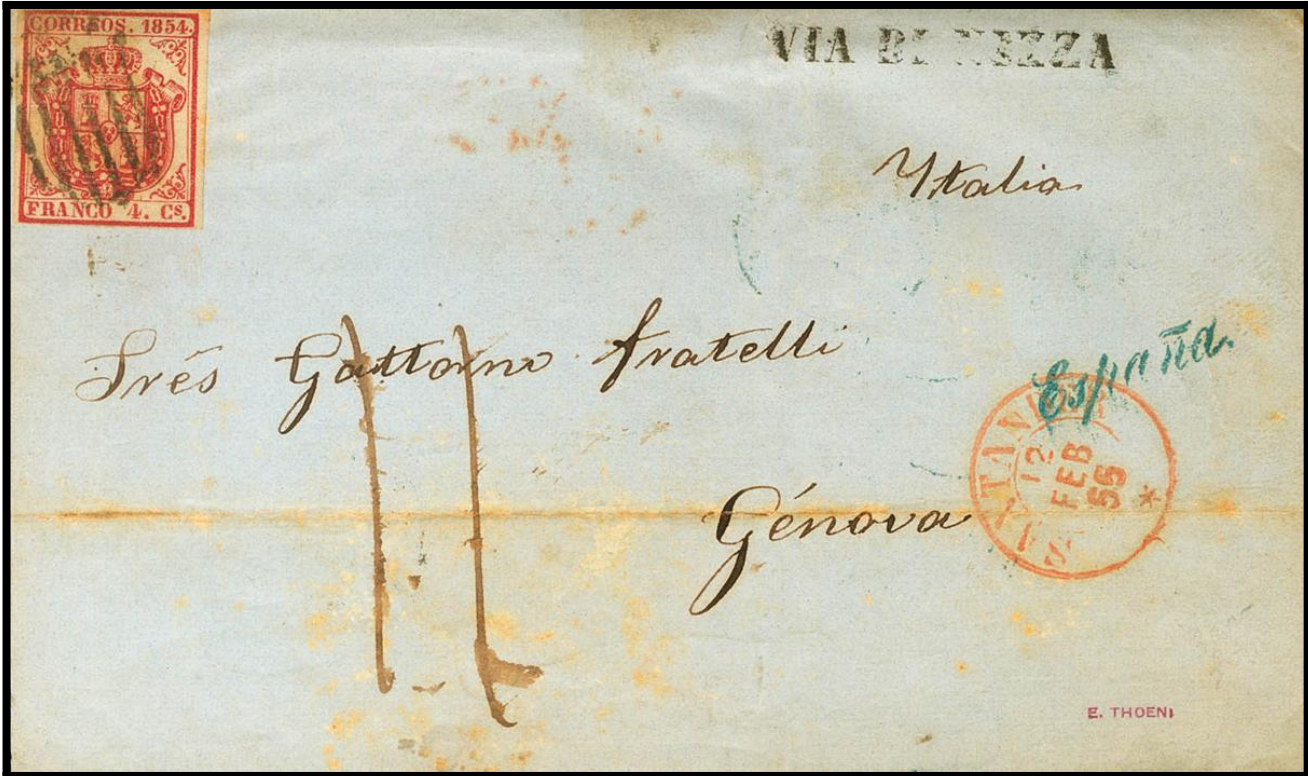 CORREOS. 1854.
FRANCO 4. Cs.
VIA DI NIZZA
Ytalia
Srés Gattorno fratelli
España.
SANTANDER
12
FEB
55
*
Génova
11
E. THOENI